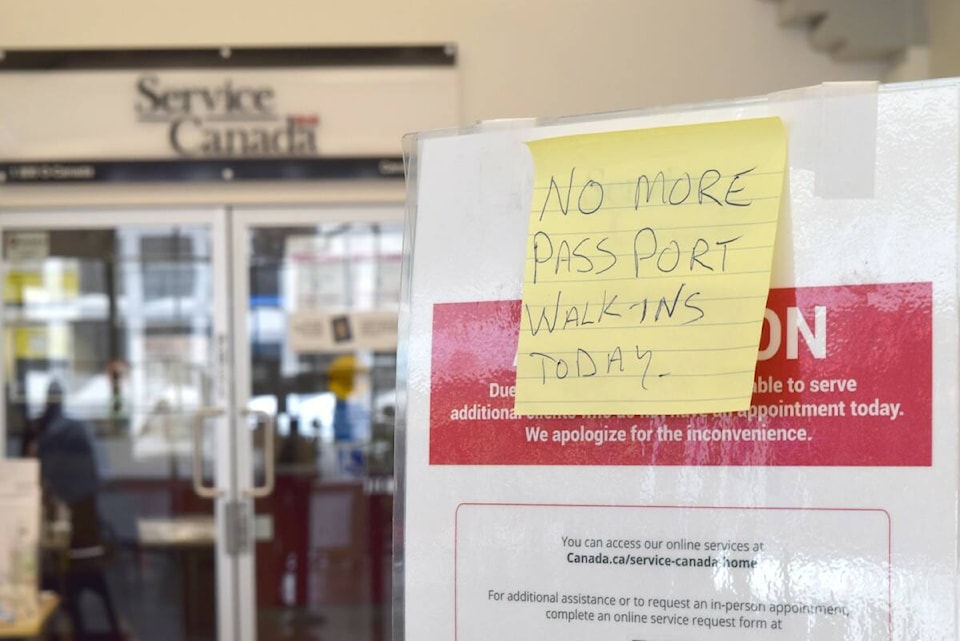 Service
Canada
NO MORE
PASSPORT
WALK-INS
TODAY.
ON
Due able to serve
additional clients who do not have an appointment today.
We apologize for the inconvenience.
You can access our online services at
Canada.ca/service-canada-home
For additional assistance or to request an in-person appointment,
complete an online service request form at